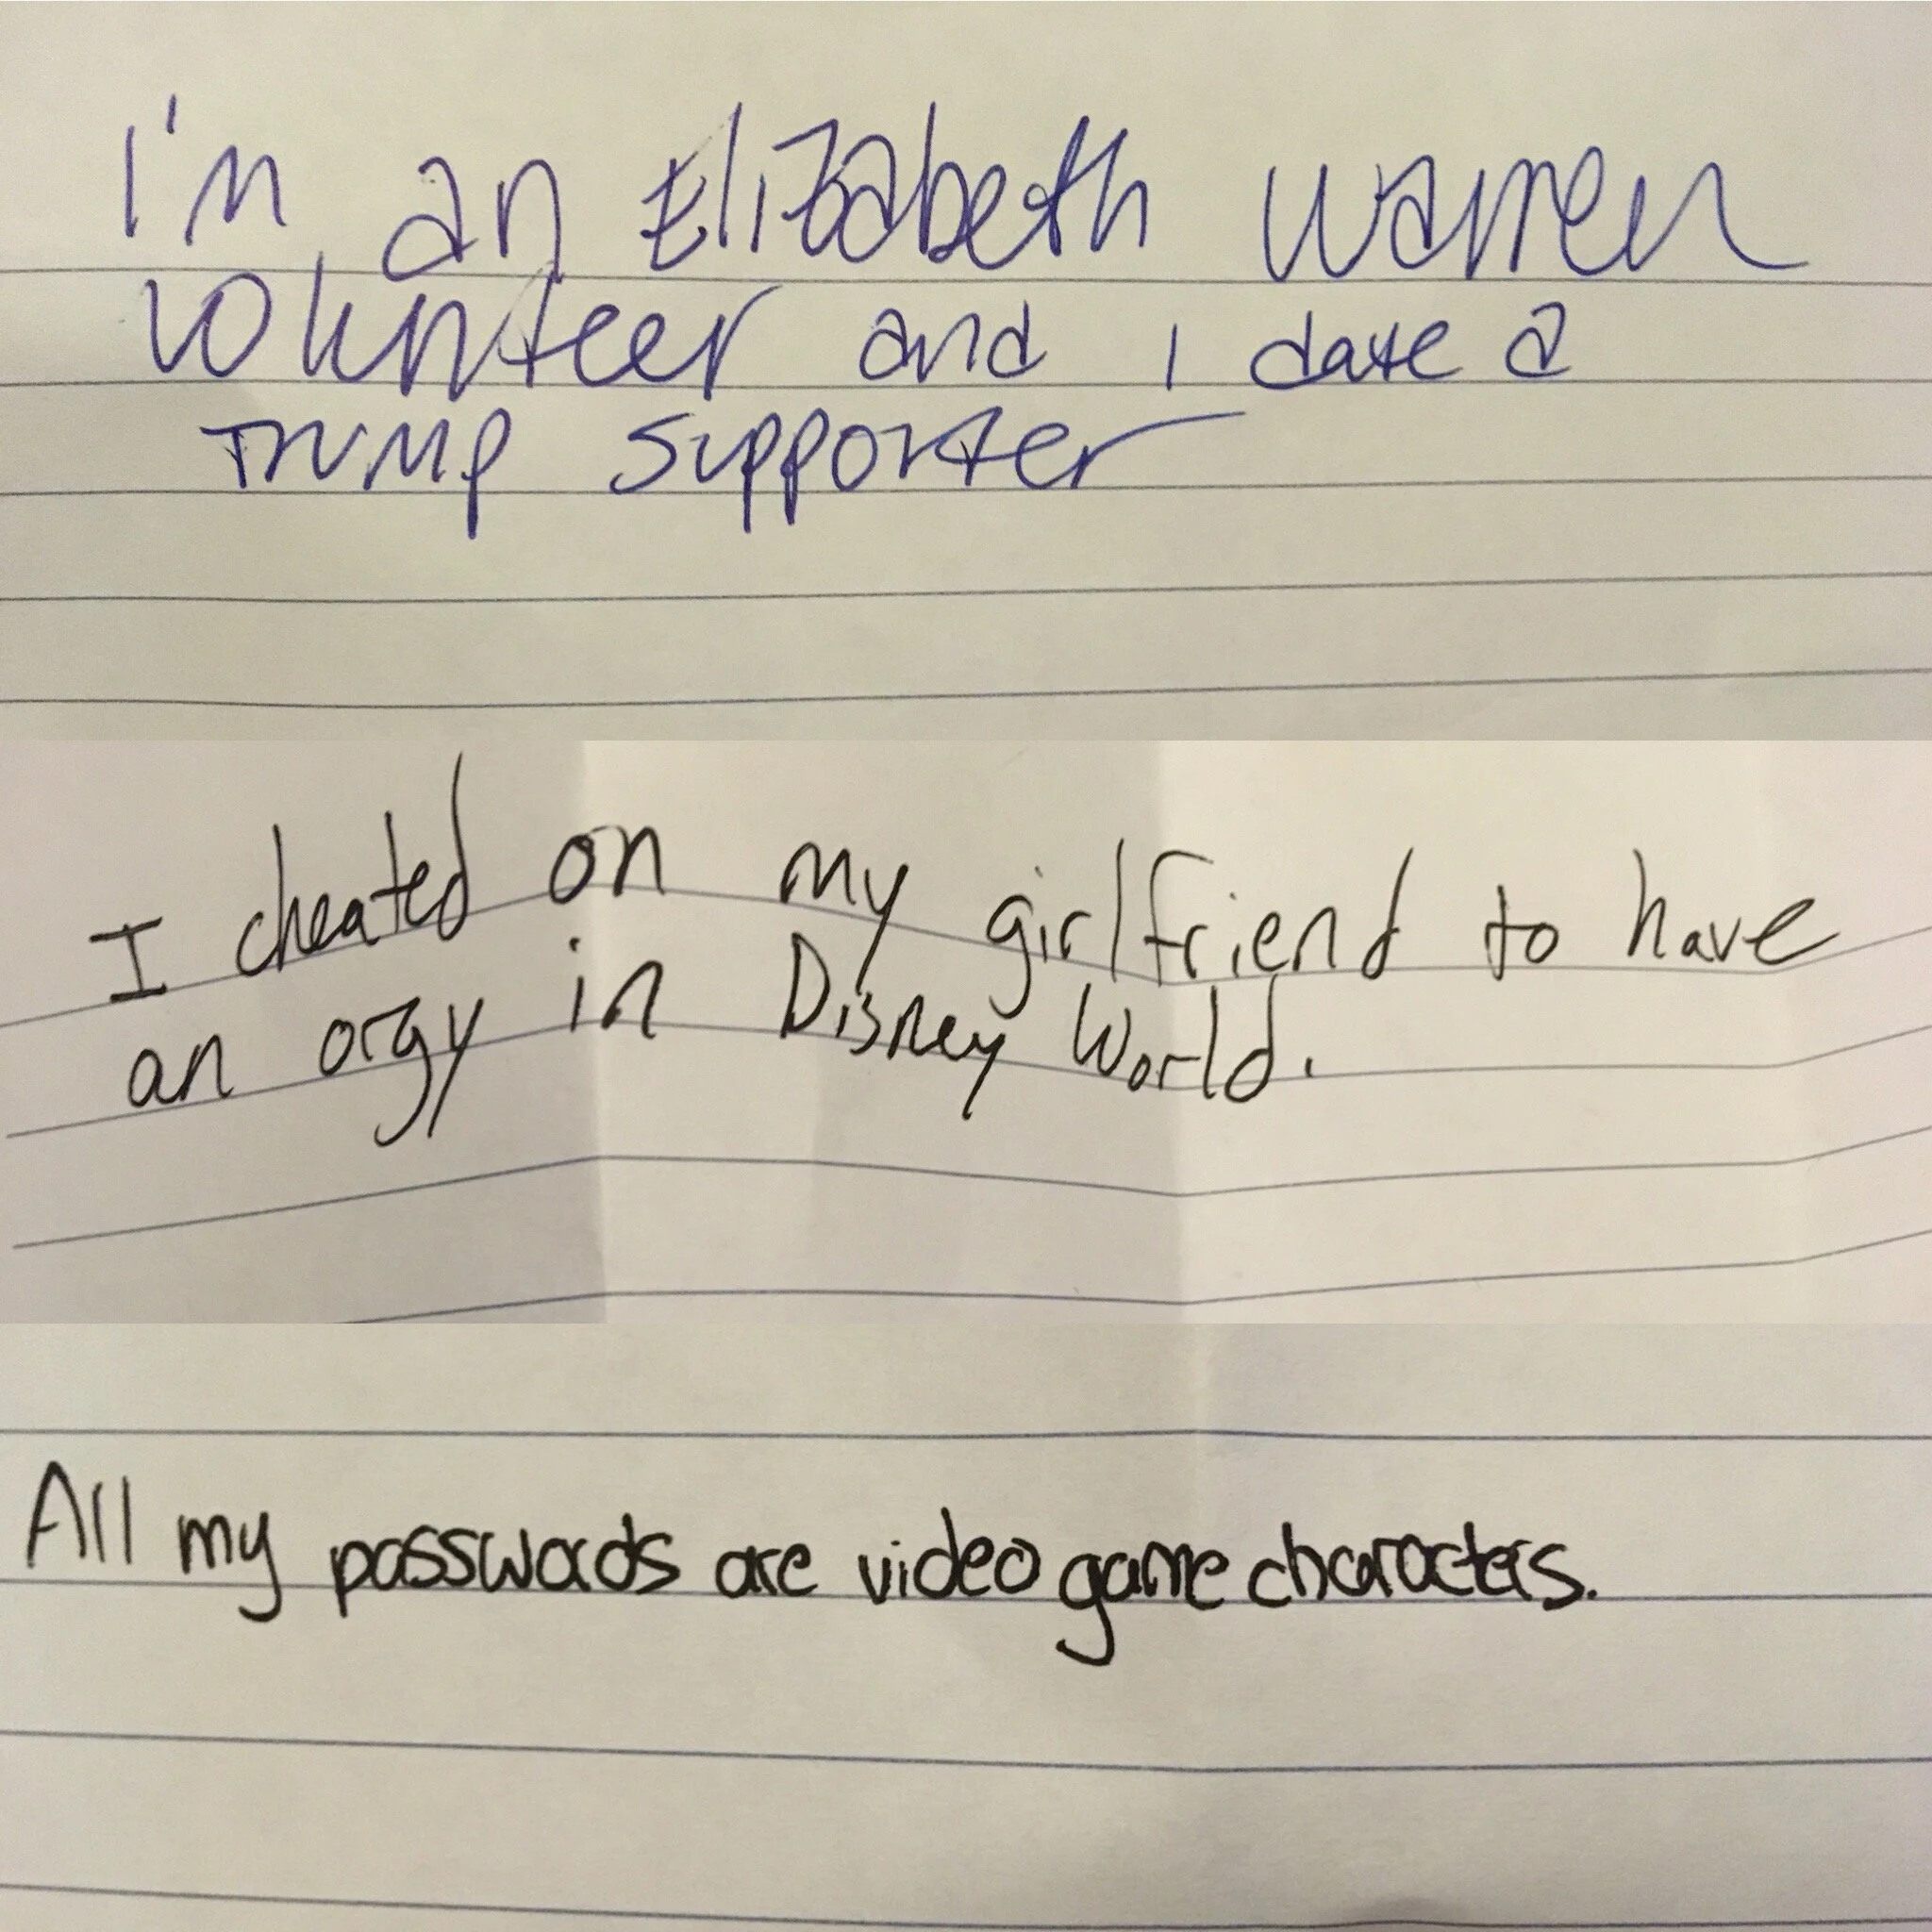 I'm an Elizabeth Warren
volunteer and I date a
Trump supporter
I cheated on my girlfriend to have
an orgy in Disney World.
All my passwords are video game characters.